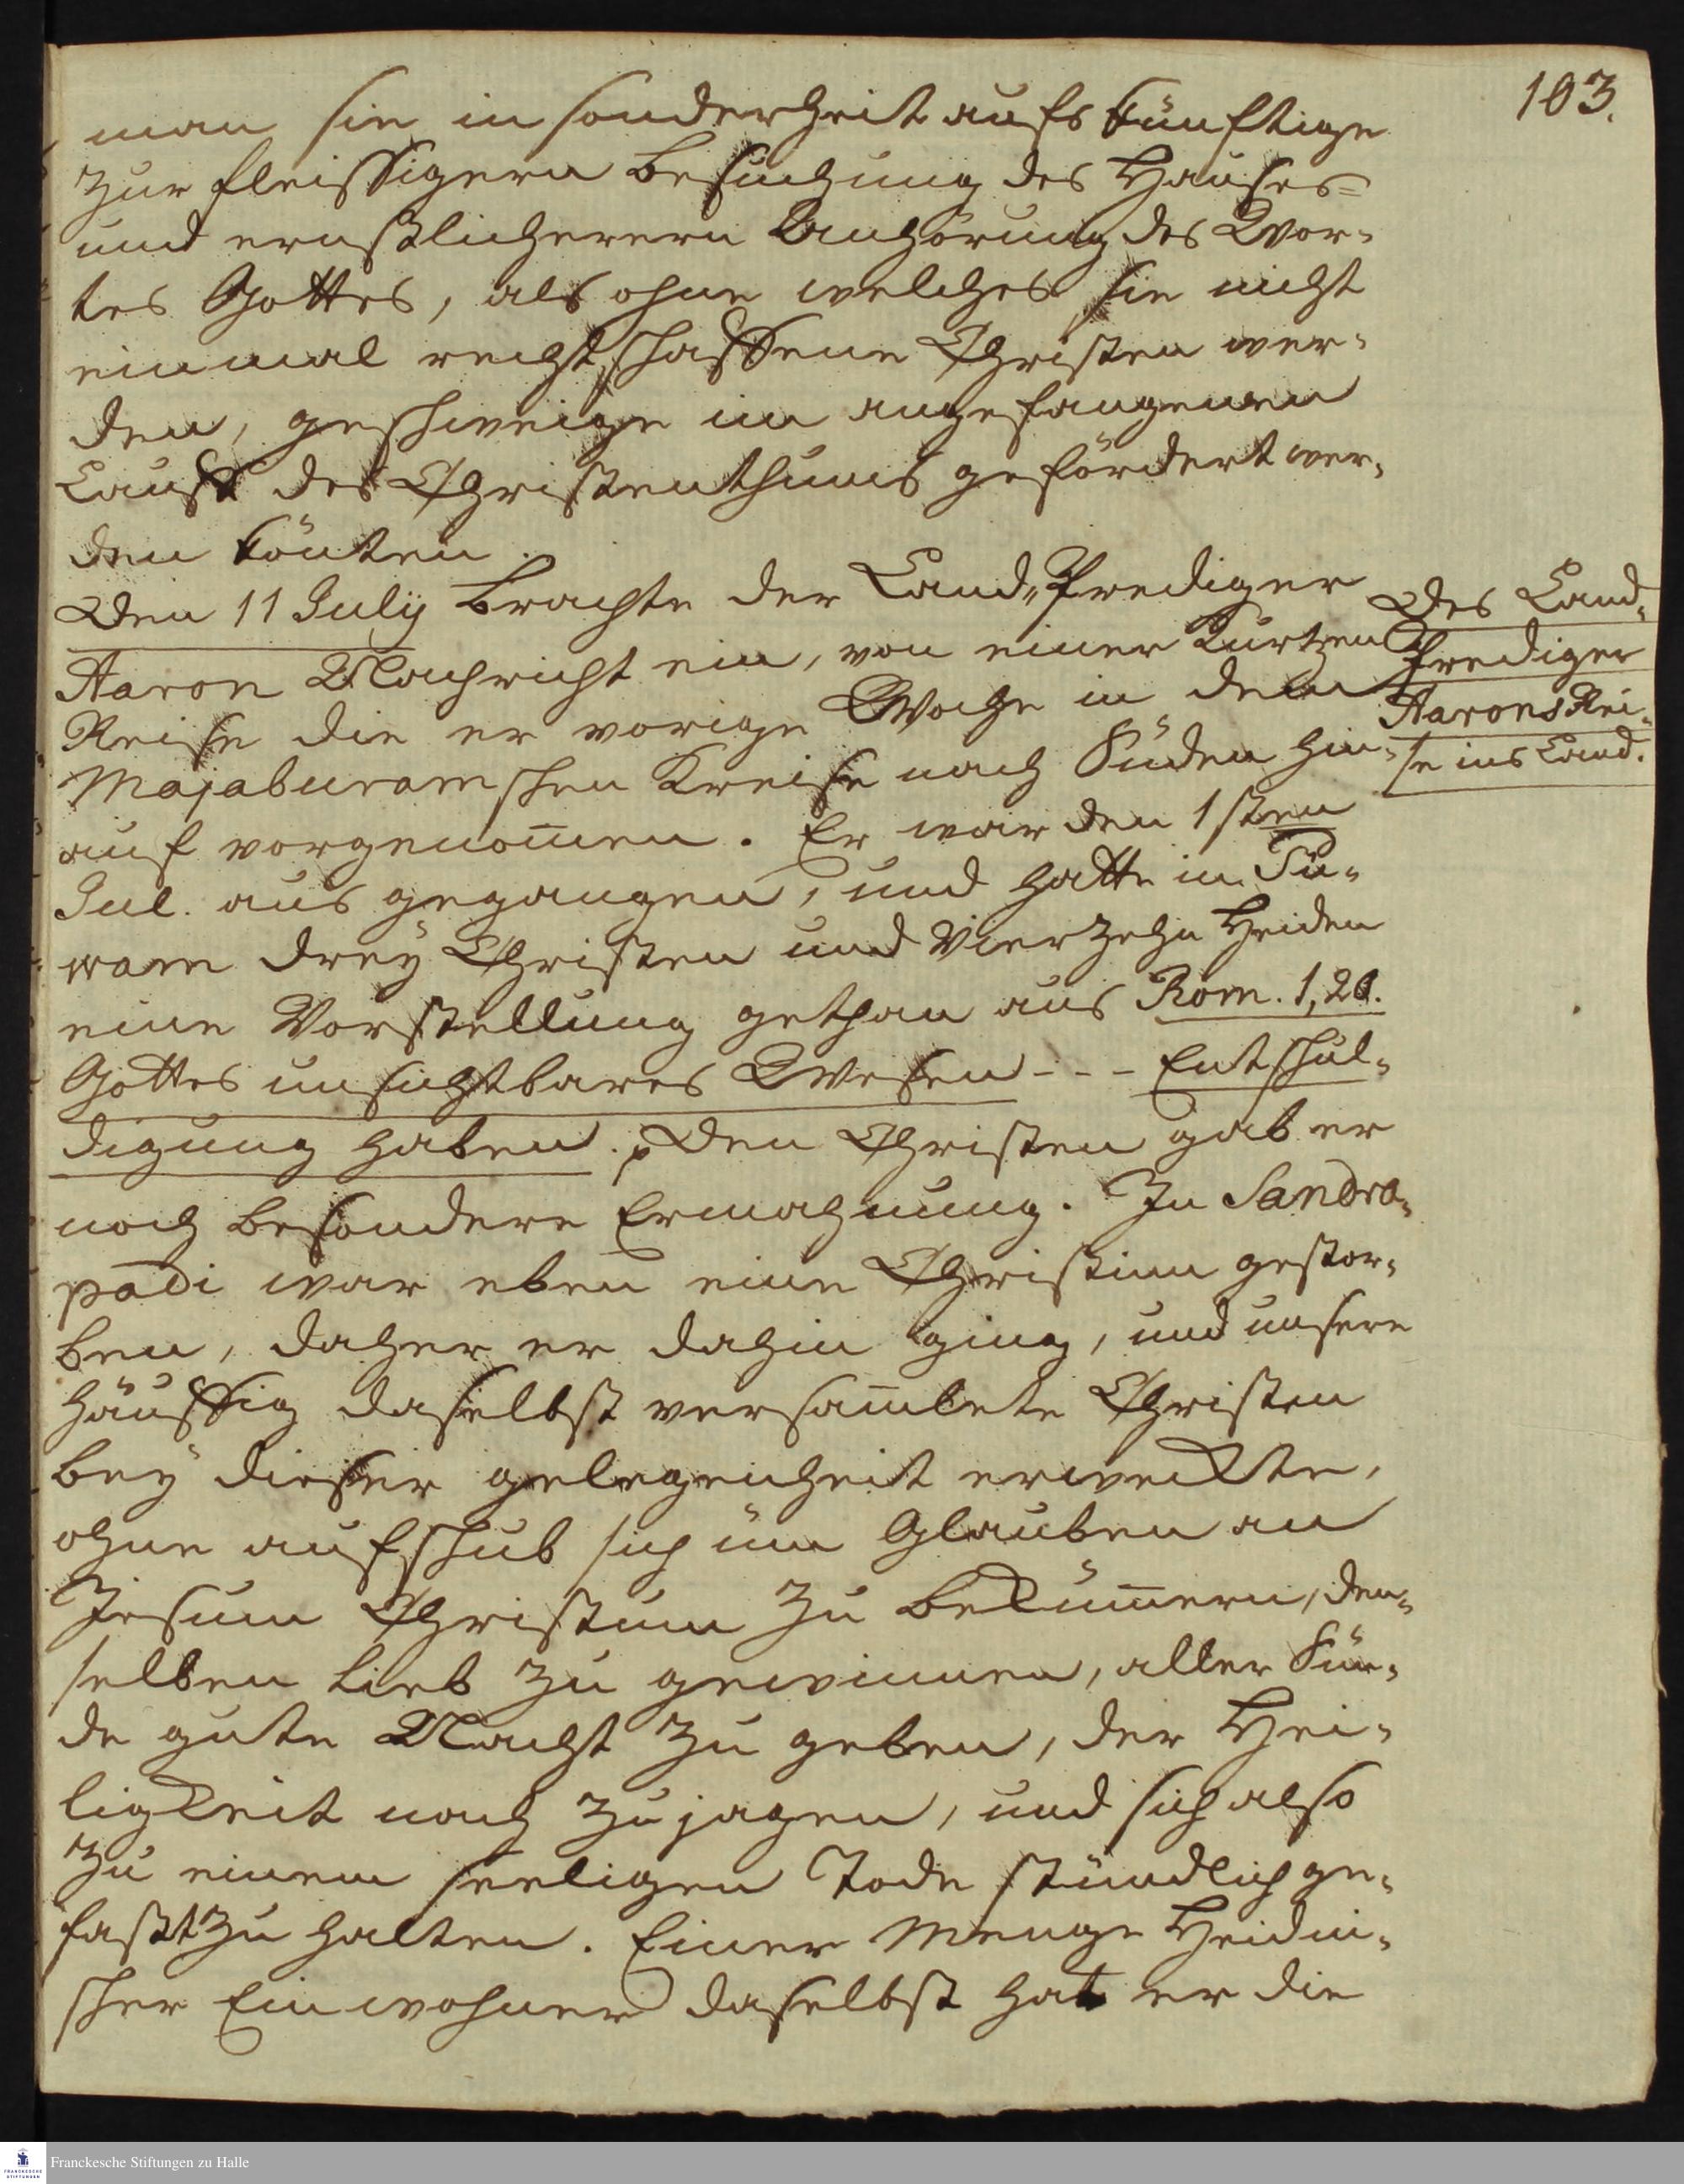 103.
man sie in sonderheit aufs künftige
zur fleissigern besuchung des Hauses=
und ernstlicherern Anhörung des Wor=
tes Gottes, als ohne welches sie nicht
einmal rechtschaffene Christen wer=
den, geschweige im angefangenen
Lauff des Christenthums gefördert wer=
den könten.
Den 11 Julij brachte der Land=Prediger
Aaron Nachricht ein, von einer kurtzen
Reise die er vorige Woche in dem
Majaburamschen Kreise nach Süden hin=
auf vorgenom̄en. Er war den 1sten
Jul. aus gegangen, und hatte in Pu=
wam drey Christen und Vierzehn Heiden
eine Vorstellung gethan aus Rom. 1,20.
Gottes unsichtbares Wesen - - - Entschul=
digung haben. Den Christen gab er
noch besondere Ermahnung. In Sandra=
padi war eben eine Christinn gestor=
ben, daher er dahin ging, und unsere
häuffig daselbst versam̄lete Christen
bey dieser gelegenheit erweckte,
ohne aufschub sich üm Glauben an
Jesum Christum zu beküm̄ern, den=
selben lieb zu gewinnen, aller Sün=
de gute Nacht zu geben, der Hei=
ligkeit nach zu jagen, und sich also
zu einem seeligen Tode stündlich ge=
fasst zu halten. Einer Menge Heidni=
scher Einwohner daselbst hat er die
Des Land=
Prediger
Aarons Rei=
se ins Land.
Franckesche Stiftungen zu Halle
FRANCKESCHE
STIFTUNGEN